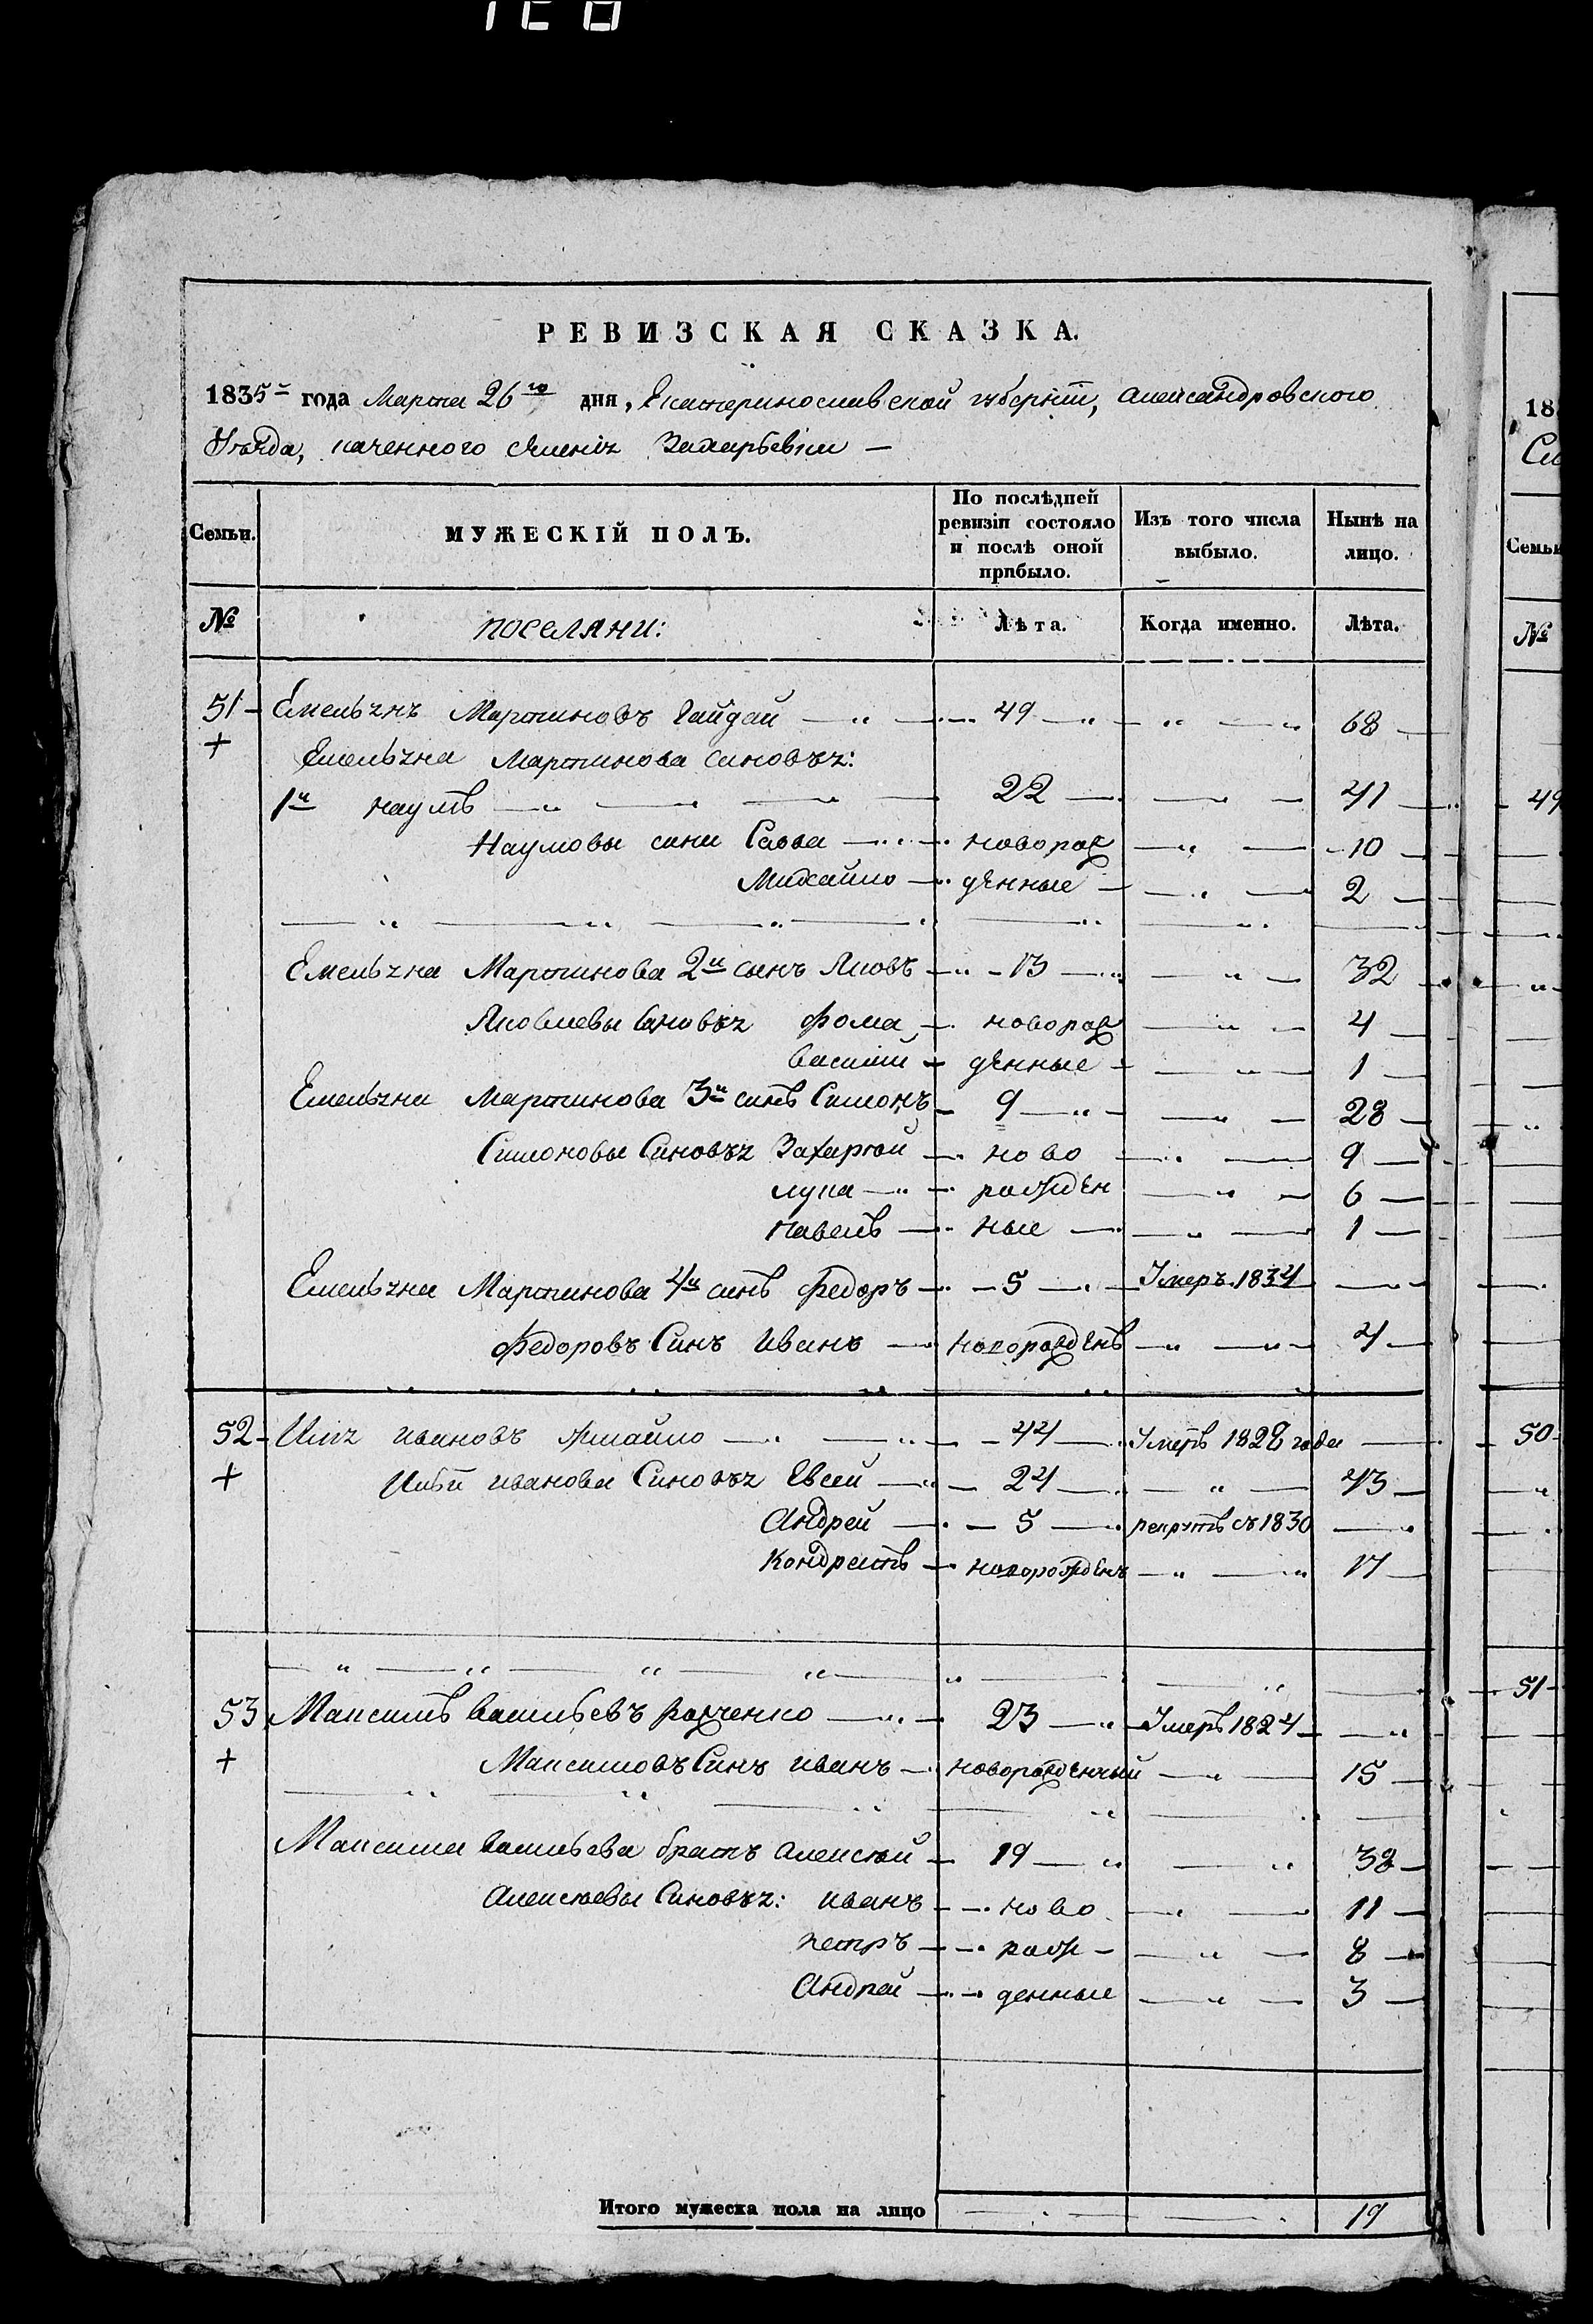 РЕВИЗСКАЯ СКАЗКА.
1835 года Марта 26го дня, Екатеринославской губернiи, Александровского
Уезда, казенного Захарьевки —
Семьи. МУЖЕСКIЙ ПОЛЪ. По послѣдней ревизiи состояло и послѣ оной прибыло. Изъ того числа выбыло. Нынѣ на лицо.
№ поселяни: Лѣта. Когда именно. Лѣта.
51 Емельянъ Мартиновъ Гайдай 49 68
+ Емельяна Мартинова синовья:
1й наумъ 22 41
Наумовы сини Савва новорож 10
Михайло денные 2
Емельяна Мартинова 2й сынъ Яковъ 13 32
Яковлевы Синовья Фома новорож 4
василий денные 1
Емельяна Мартинова 3й синъ Симонъ 9 28
Симоновы Синовья Захарий ново 9
лука рожден 6
павелъ ные 1
Емельяна Мартинова 4й синъ Федоръ 5 Умеръ 1834
Федоровъ Синъ Иванъ новорожденъ 4
52 Илья ивановъ 44 Умеръ 1828 года
+ Ильи иванова Синовья Евсей 24 43
Андрей 5 рекрутъ съ 1830
Кондратъ новорожденъ 17
53 Максимъ васильевъ Радченко 23 Умеръ 1824
+ Максимовъ Синъ иванъ новорожденный 15
Максима васильева братъ алексей 19 38
Алексеевы Синовья: иванъ ново 11
петръ рож 8
Андрей денные 3
Итого мужеска пола на лицо 19
18
Семьи
№
49
50
51